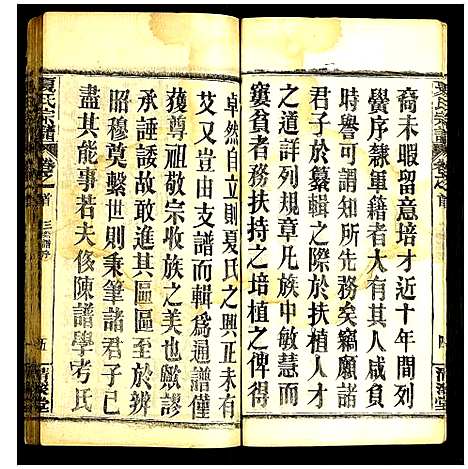 裔未暇留意培才近十年間列
黌序隸軍籍者人咸負
時譽可謂知所先務矣竊願諸
君子於纂輯之際於扶植人
之道增列規章凡族中敏慧而
窶貧者務扶持之培植之俾得
卓然自立則夏氏之興正未有
艾又豈由支譜而輯為通譜僅
獲尊祖敬宗收族之美也歟謬
承諈諉故敢進其區區至於辨
昭穆奠繫世則秉筆諸君子已
盡其能事若夫侈陳譜學考氏
夏氏宗譜
卷之首
三
清潑堂